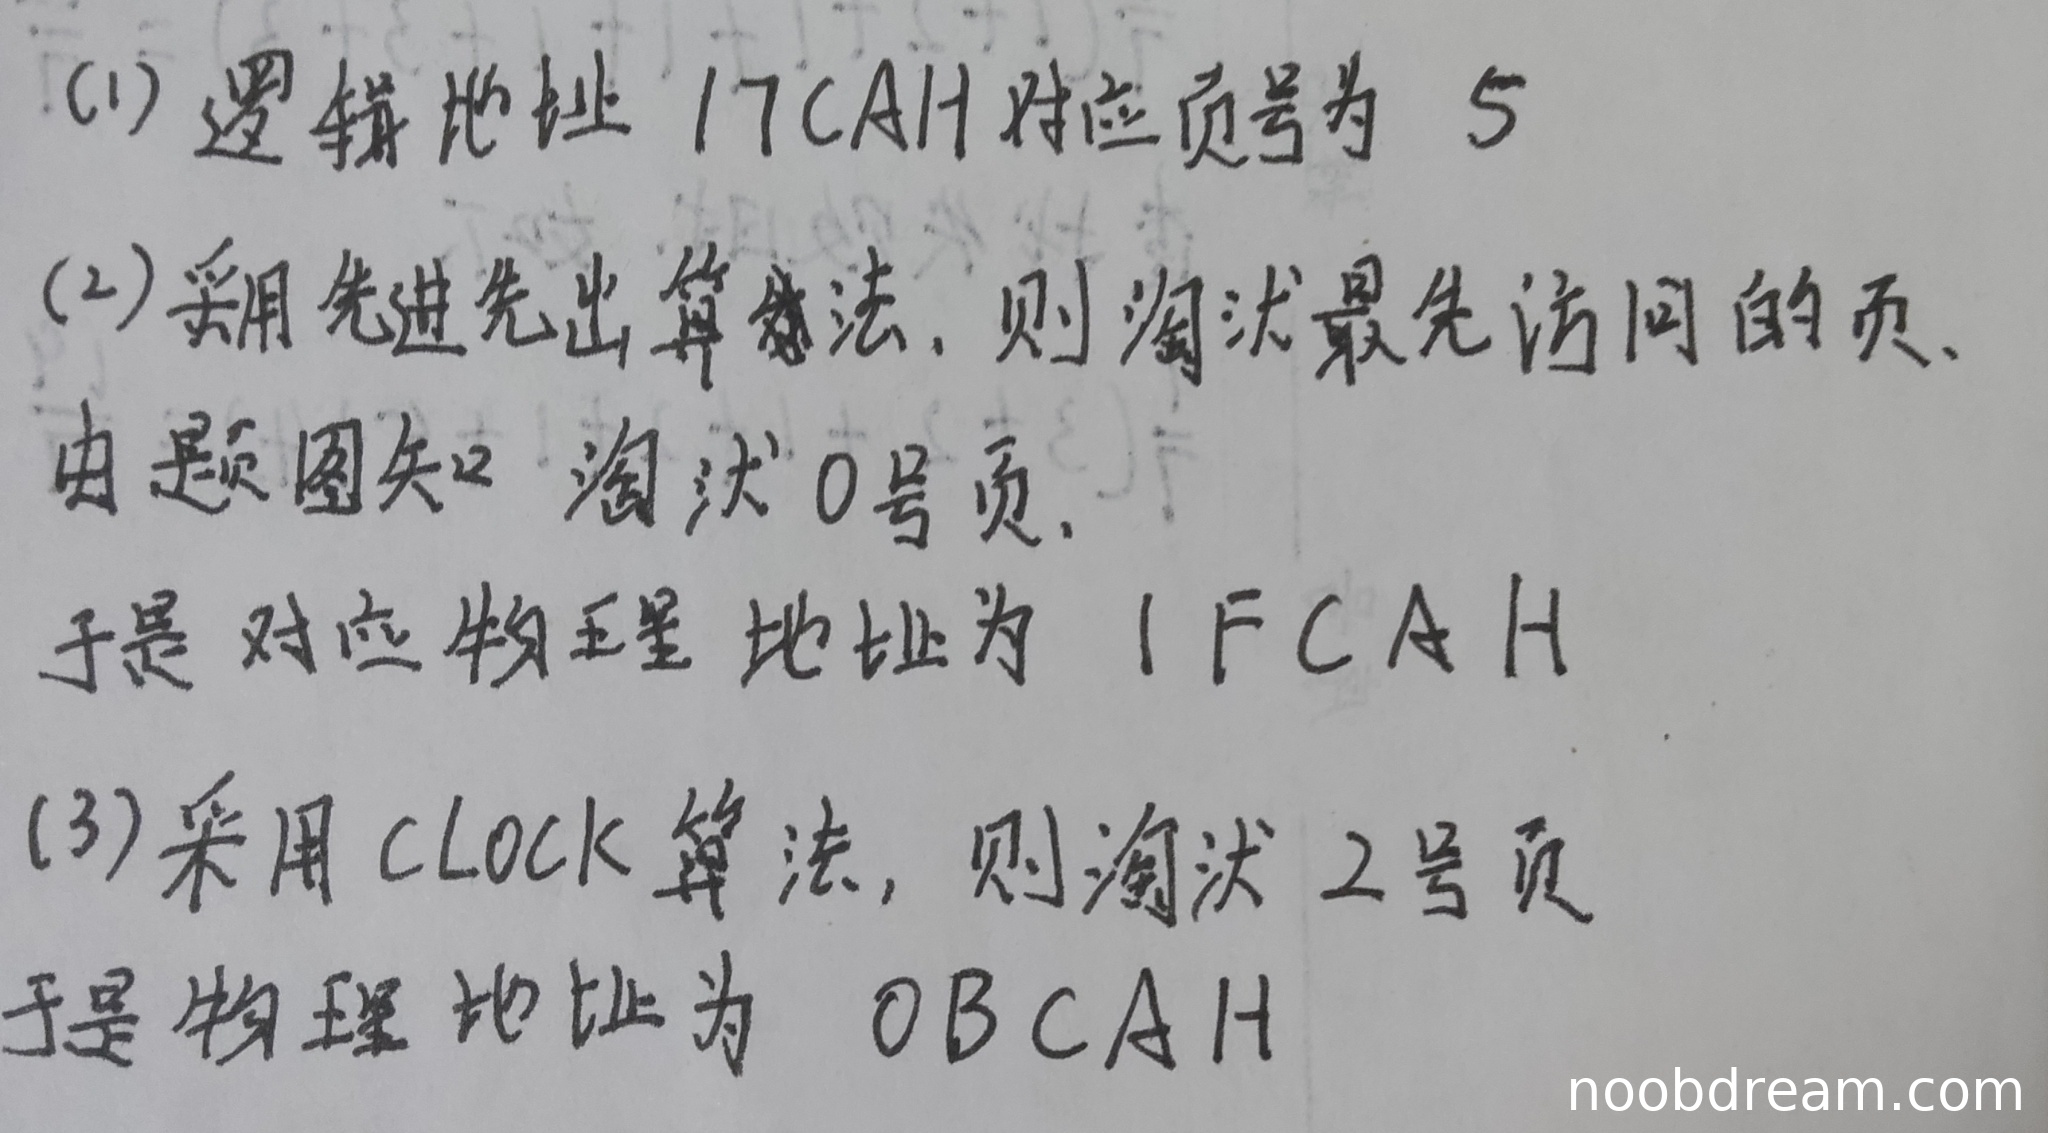 (1) 逻辑地址 17CAH 对应页号为 5
(2) 采用先进先出算法,则淘汰最先访问的页.
由题图知 淘汰0号页.
于是对应物理地址为 1FCAH
(3) 采用CLOCK算法,则淘汰2号页
于是物理地址为 0BCAH
noobdream.com